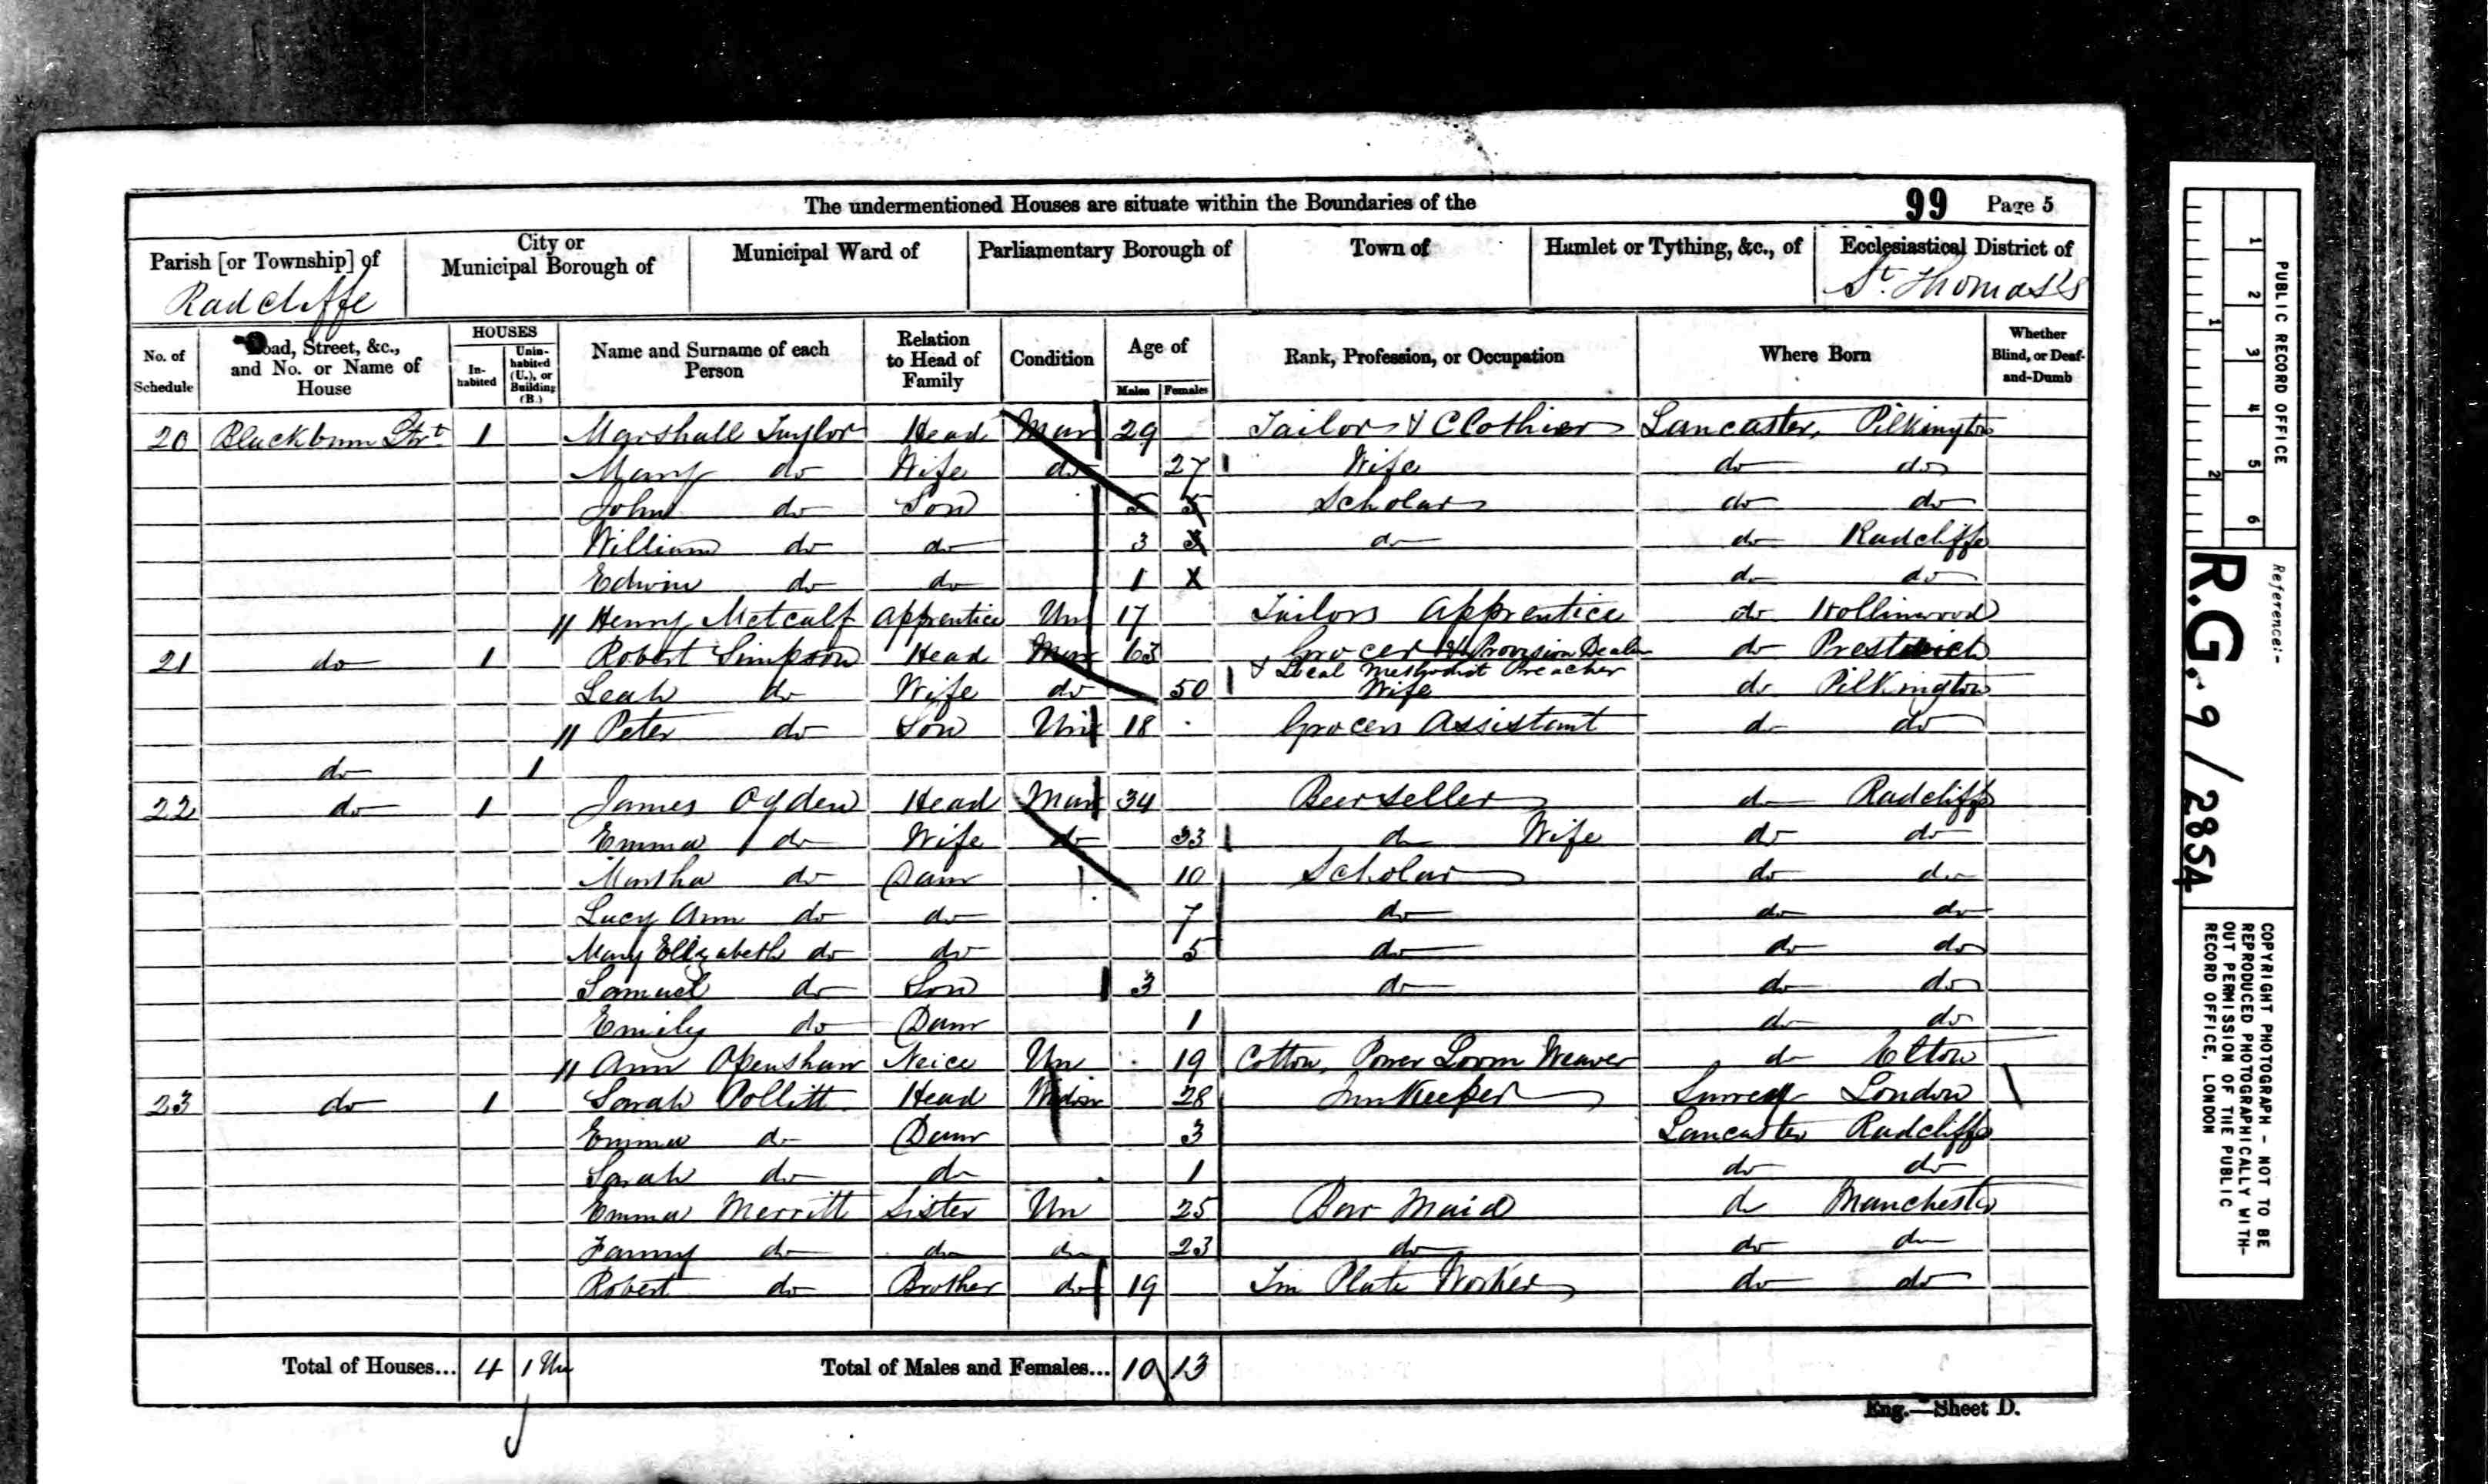 The undermentioned Houses are situate within the Boundaries of the
99 Page 5
Parish [or Township] of
Radcliffe
City or
Municipal Borough of
Municipal Ward of
Parliamentary Borough of
Town of
Hamlet or Tything, &c., of
Ecclesiastical District of
St. Thomas's
No. of
Schedule
Road, Street, &c.,
and No. or Name of
House
HOUSES
In-
habited
Unin-
habited
(U.), or
Building
(B.)
Name and Surname of each
Person
Relation
to Head of
Family
Condition
Age of
Males Females
Rank, Profession, or Occupation
Where Born
Whether
Blind, or Deaf-
and-Dumb
20 Blackburn Strt 1 Marshall Taylor Head Mar 29 Tailor & Clothier Lancaster, Pilkington
Mary do Wife do 27 Wife do do
John do Son 5 5 Scholar do do
William do do 3 3 do do Radcliffe
Edwin do do 1 X do do
// Henry Metcalf Apprentice Un 17 Tailors Apprentice do Hollinwood
21 do 1 Robert Simpson Head Mar 63 Grocer & Provision Dealer do Prestwich
& Local Methodist Preacher
Leah do Wife do 50 Wife do Pilkington
// Peter do Son Un 18 Grocers Assistant do do
do 1
22 do 1 James Ogden Head Mar 34 Beerseller do Radcliffe
Emma do Wife do 33 do Wife do do
Martha do Daur 10 Scholar do do
Lucy Ann do do 7 do do do
Mary Elizabeth do do 5 do do do
Samuel do Son 3 do do do
Emily do Daur 1 do do
// Ann Openshaw Neice Un 19 Cotton, Power Loom Weaver do Elton
23 do 1 Sarah Pollitt Head Widow 28 Inn Keeper Surrey London
Emma do Daur 3 Lancaster Radcliffe
Sarah do do 1 do do
Emma Merritt Sister Un 25 Bar Maid do Manchester
Fanny do do do 23 do do do
Robert do Brother do 19 Tin Plate Worker do do
Total of Houses... 4 1 Un Total of Males and Females... 10 13
Eng.—Sheet D.
PUBLIC RECORD OFFICE
1 2 3 4 5 6
1 2
Reference:-
R.G. 9/2854
COPYRIGHT PHOTOGRAPH - NOT TO BE
REPRODUCED PHOTOGRAPHICALLY WITH-
OUT PERMISSION OF THE PUBLIC
RECORD OFFICE, LONDON